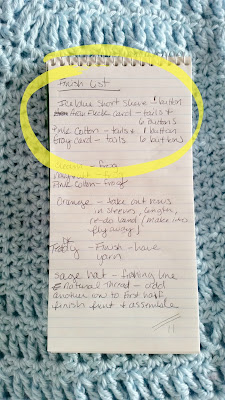 Finish List
Icelandic short sleeve 1 button
card - tails &
6 buttons
Pink Cotton - tails & 1 button
Gray card - tails 6 buttons
- frog
- frog
Pink Cotton - frog
Orange - take out rows
in sleeves,
re-do band (make into
fly away)
Teddy - Finish - have
yarn
Sage hat - fishing line
Natural Thread - add
another row to first half,
finish front & assemble